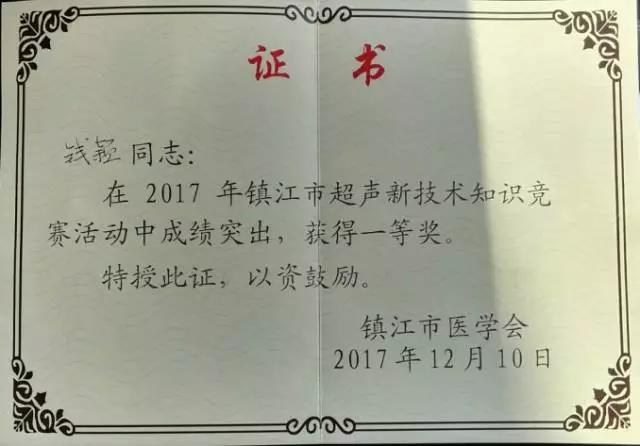 证 书
钱颖同志：
在 2017 年镇江市超声新技术知识竞
赛活动中成绩突出，获得一等奖。
特授此证，以资鼓励。
镇江市医学会
2017 年 12 月 10 日